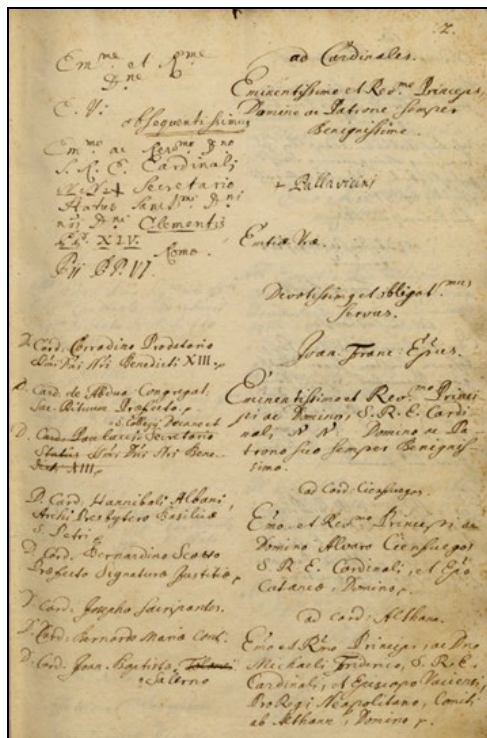 .2.
Em.me et R.me
D.ne
E. V.
obsequentissimus
Em.mo ac Rev.mo D.no
S. R. E. Cardinali
Secretario
Status Sanc.mi D.ni
n.ri D.ni Clementis
XIV.
Romæ.
Pii PP. VI.
D. Card. Corradino Prodatario
Dni Nri Benedicti XIII.
D. Card. de Abdua Congregat.
Sac. Rituum Præfecto.
S. Collegii Decano et
D. Card. Paulucci Secretario
Status Dni Nri Bene-
dicti XIII.
D. Card. Hannibali Albani,
Archi Presbytero Basilicæ
S. Petri.
D. Card. Bernardino Scotto
Præfecto Signaturæ Justitiæ
D. Card. Josepho Sacripantes.
D. Card. Bernardo Maria Cont.
D. Card. Joan. Baptista
Salerno
ad Cardinales.
Eminentissime et Rev.me Princeps,
Domine ac Patrone semper
Benignissime.
Pallavicini
Emtiæ Vræ.
Devotissimg et obligat.mus
Servus.
Joan. Franc. Epus.
Eminentissimo et Rev.mo Princi-
pi ac Domino, S. R. E. Cardi-
nali N N Domino ac Pa-
trono suo semper Benignis-
simo.
ad Card. Cienfuegos.
Emo. et Rev.mo Principi ac
Domino Alvaro Cienfuegos
S. R. E. Cardinali, et Epo
Cataneo, Domino
ad Card. Althann.
Emo et Rmo Principi, ac Dno
Michaeli Friderico, S. R. E.
Cardinali, et Episcopo Vaciensi,
ProRegi Neapolitano, Comiti
ab Althann, Domino